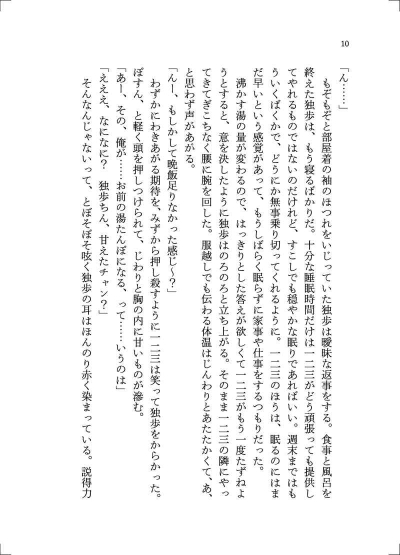 10
「ん……」
　もぞもぞと部屋着の袖のほつれをいじっていた独歩は曖昧な返事をする。食事と風呂を
終えた独歩は、もう寝るばかりだ。十分な睡眠時間だけは一二三がどう頑張っても提供し
てやれるものではないのだけれど、すこしでも穏やかな眠りであればいい。週末まではも
ういくばくかで、どうにか無事乗り切ってくれるように。一二三のほうは、眠るのにはま
だ早いという感覚があって、もうしばらく眠らずに家事や仕事をするつもりだった。
　沸かす湯の量が変わるので、はっきりとした答えが欲しくて一二三がもう一度たずねよ
うとすると、意を決したように独歩はのろのろと立ち上がる。そのまま一二三の隣にやっ
てきてぎこちなく腰に腕を回した。服越しでも伝わる体温はじんわりとあたたかくて、あ、
と思わず声があがる。
「んー、もしかして晩飯足りなかった感じ〜？」
　わずかにわきあがる期待を、みずから押し殺すように一二三は笑って独歩をからかった。
ぽすん、と軽く頭を押しつけられて、じわりと胸の内に甘いものが滲む。
「あー、その、俺が……お前の湯たんぽになる、って……いうのは」
「えええ、なになに？　独歩ちん、甘えたチャン？」
　そんなんじゃないって、とぼそぼそ呟く独歩の耳はほんのり赤く染まっている。説得力